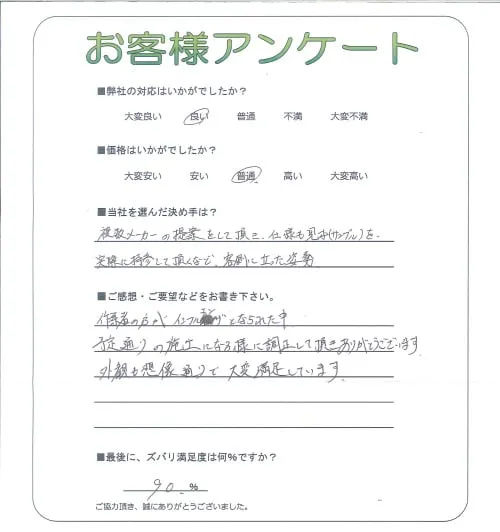 お客様アンケート
■弊社の対応はいかがでしたか?
大変良い 良い 普通 不満 大変不満
■価格はいかがでしたか?
大変安い 安い 普通 高い 大変高い
■当社を選んだ決め手は?
複数メーカーの提案をして頂き、仕様も見本(サンプル)を、
実際に持参して頂くなど、客側に立った姿勢
■ご感想・ご要望などをお書き下さい。
作業者の方が インフル となられた中
予定通りの施工になる様に調正して頂きありがとうございます
外観も想像通りで大変満足しています
■最後に、ズバリ満足度は何%ですか?
90 %
ご協力頂き、誠にありがとうございました。